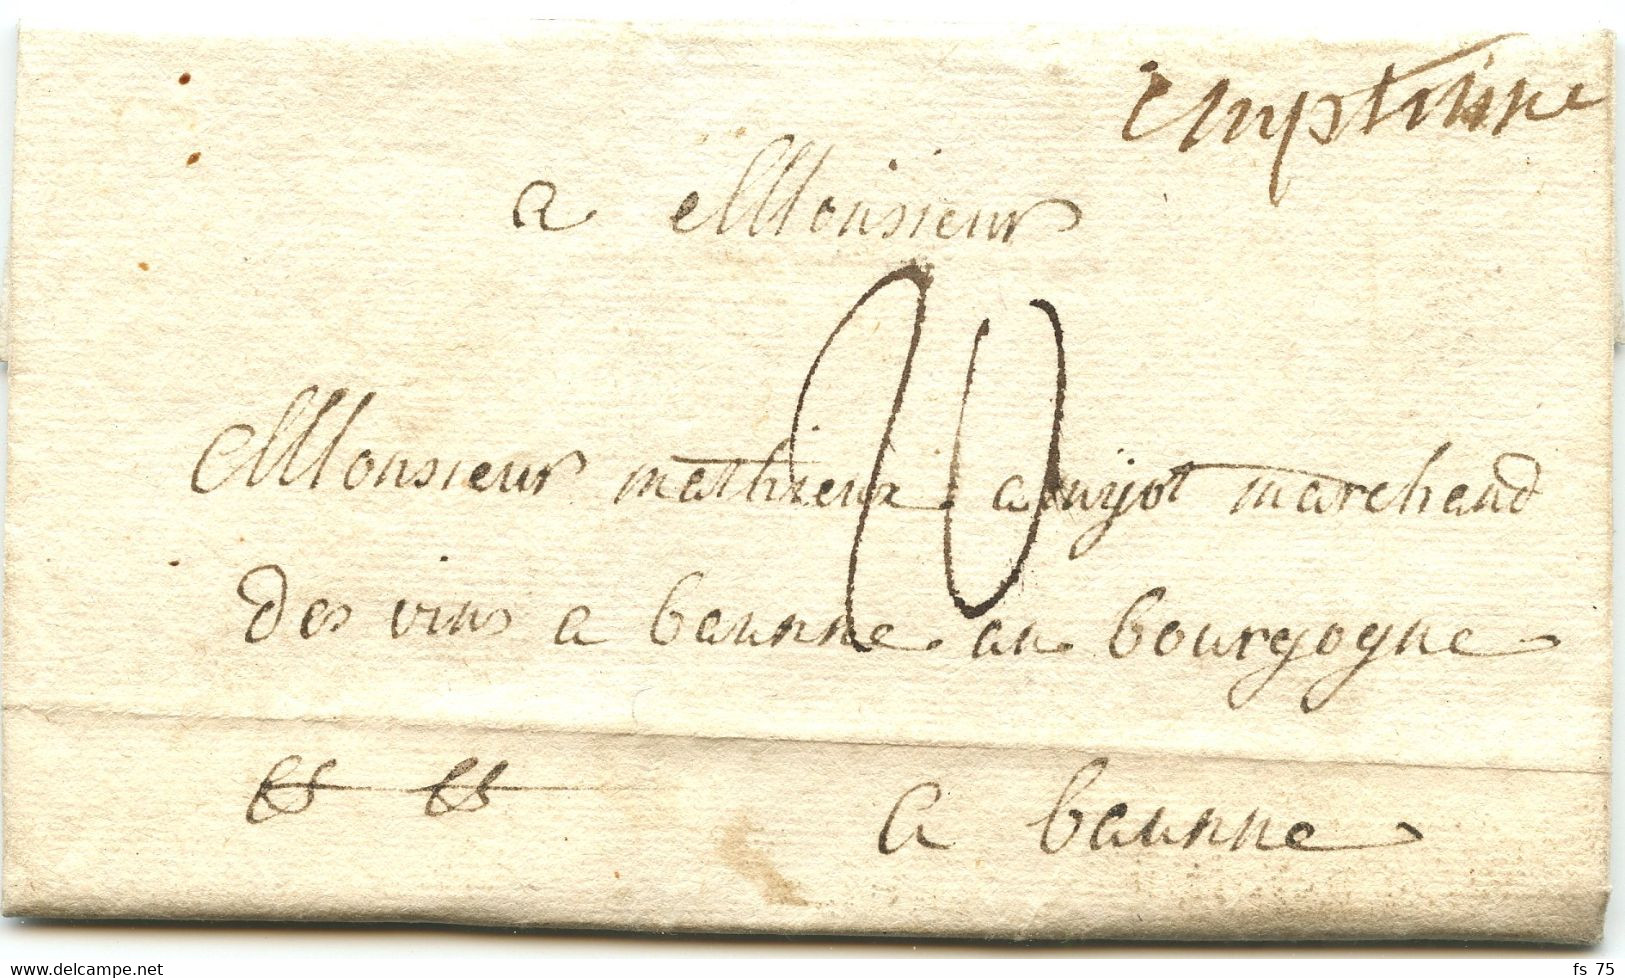 emptinne
a Monsieur
20
Monsieur mathieux marchand
des vins a baunne an bourgogne
a baunne
www.delcampe.net
fs 75